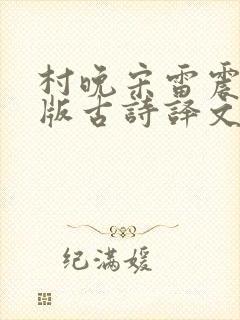 村晚宋雷震
版古詩譯文
纪满媛